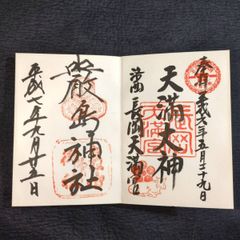 奉拝 平成六年五月二十九日
天満大神
洛西 長岡天満宮
嚴島神社
平成七年九月廿五日